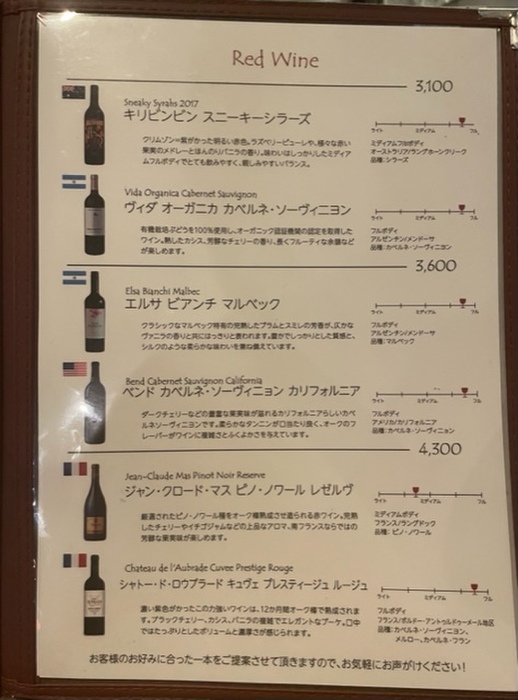 Red Wine
3,100
Sneaky Syrahs 2017
キリビンビン スニーキーシラーズ
クリムゾン=紫がかった明るい赤色。ラズベリーピューレや、様々な赤い
果実のメドレーとほんのりバニラの香り。味わいはしっかりしたミディア
ムフルボディでとても飲みやすく、親しみやすいバランス。
ライト ミディアム フル
ミディアムフルボディ
オーストラリア/ラングホーンクリーク
品種:シラーズ
Vida Organica Cabernet Sauvignon
ヴィダ オーガニカ カベルネ・ソーヴィニヨン
有機栽培ぶどうを100%使用し、オーガニック認証機関の認定を取得した
ワイン。熟したカシス、芳醇なチェリーの香り、長くフルーティな余韻など
が楽しめます。
ライト ミディアム フル
フルボディ
アルゼンチン/メンドーサ
品種:カベルネ・ソーヴィニヨン
3,600
Elsa Bianchi Malbec
エルサ ビアンチ マルベック
クラシックなマルベック特有の完熟したプラムとスミレの芳香が、仄かな
ヴァニラの香りと共にはっきりと表われます。豊かでしっかりとした質感と、
シルクのような柔らかな味わいを兼ね備えています。
ライト ミディアム フル
フルボディ
アルゼンチン/メンドーサ
品種:マルベック
Bend Cabernet Sauvignon California
ベンド カベルネ・ソーヴィニョン カリフォルニア
ダークチェリーなどの豊富な果実味が溢れるカリフォルニアらしいカベ
ルネソーヴィニヨンです。柔らかなタンニンが口当たり良く、オークのフ
レーバーがワインに複雑さとふくよかさを与えています。
ライト ミディアム フル
フルボディ
アメリカ/カリフォルニア
品種:カベルネ・ソーヴィニョン
4,300
Jean-Claude Mas Pinot Noir Reserve
ジャン・クロード・マス ピノ・ノワール レゼルヴ
厳選されたピノ・ノワール種をオーク樽熟成させ造られる赤ワイン。完熟
したチェリーやイチゴジャムなどの上品なアロマ、南フランスならではの
芳醇な果実味が楽しめます。
ライト ミディアム フル
ミディアムボディ
フランス/ラングドック
品種:ピノ・ノワール
Chateau de l'Aubrade Cuvee Prestige Rouge
シャトー・ド・ロウブラード キュヴェ プレスティージュ ルージュ
濃い紫色がかったこの力強いワインは、12か月間オーク樽で熟成されま
す。ブラックチェリー、カシス、バニラの複雑でエレガントなブーケ。口中
ではたっぷりとしたボリュームと濃厚さが感じられます。
ライト ミディアム フル
フルボディ
フランス/ボルドー・アントゥルドゥーメール地区
品種:カベルネ・ソーヴィニヨン、
メルロー、カベルネ・フラン
お客様のお好みに合った一本をご提案させて頂きますので、お気軽にお声がけください!